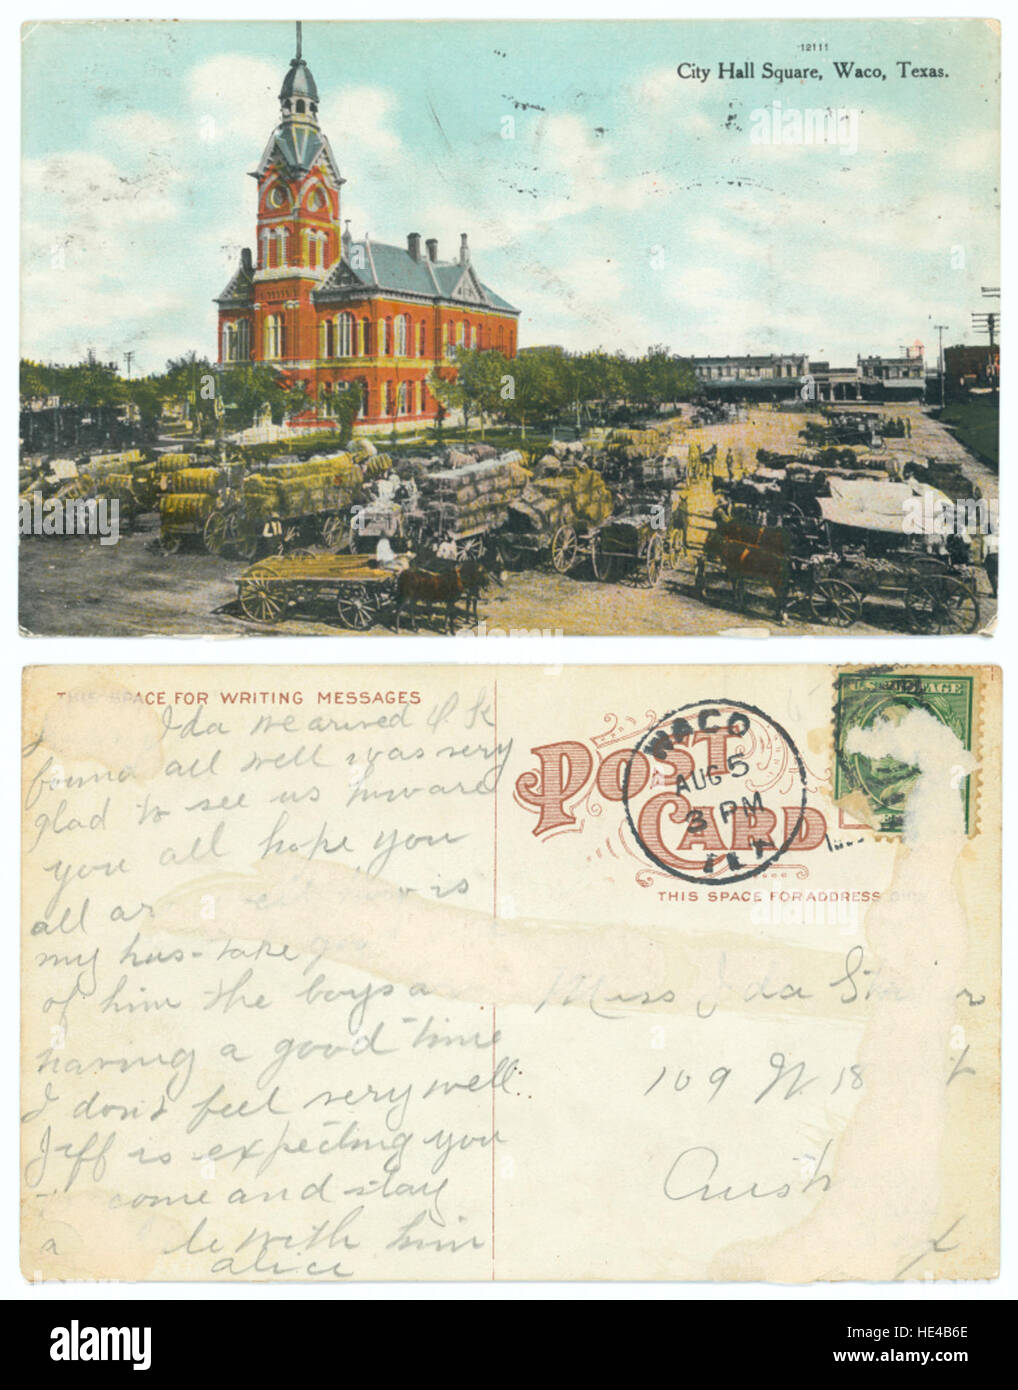 12111
City Hall Square, Waco, Texas.
alamy
THIS SPACE FOR WRITING MESSAGES
Ida we arived O.K
found all well was very
glad to see us
you all hope you
all are is
my hus- take
of him the boys a
having a good time
I don't feel very well
Jeff is expecting you
come and stay
a with him
alice
POST CARD
WACO
AUG 5
3 PM
TEX
U.S. POSTAGE
THIS SPACE FOR ADDRESS
Miss Ida
109 W. 18
Aust
alamy
Image ID: HE4B6E
www.alamy.com